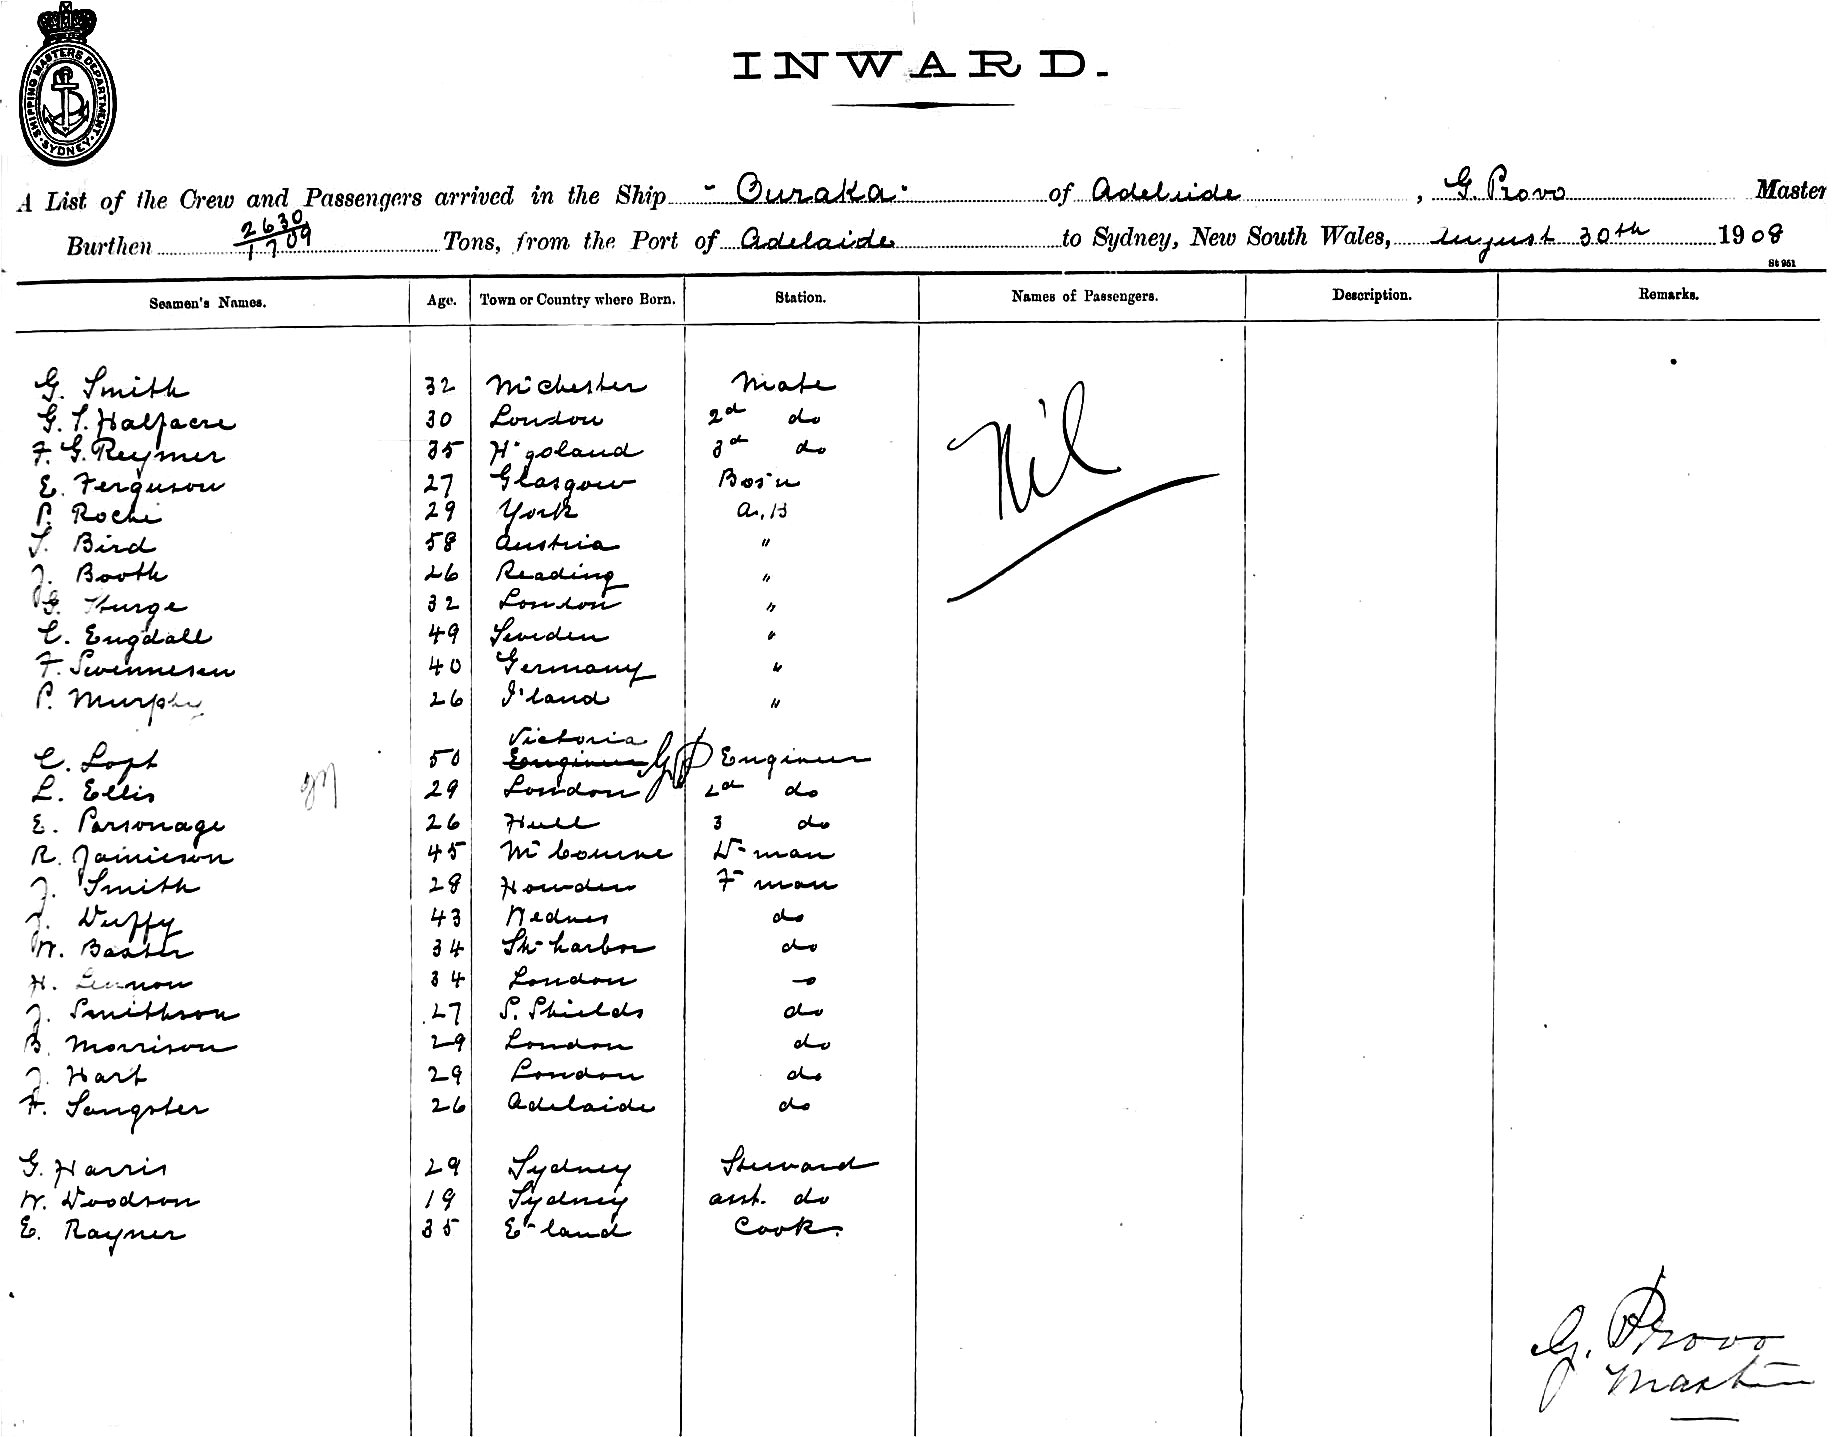 SHIPPING MASTERS DEPARTMENT. SYDNEY
INWARD.
A List of the Crew and Passengers arrived in the Ship "Ouraka" of Adelaide, G. Provo Master
Burthen 2630/1709 Tons, from the Port of Adelaide to Sydney, New South Wales, August 30th 1908
St 951
Seamen's Names. Age. Town or Country where Born. Station. Names of Passengers. Description. Remarks.
G. Smith 32 M'chester Mate
G. S. Halfacre 30 London 2d do
F. G. Reymer 35 H'goland 3d do
Nil
E. Ferguson 27 Glasgow Bos'n
P. Roche 29 York A.B
S. Bird 58 Austria "
J. Booth 26 Reading "
G. Sturge 32 London "
C. Engdall 49 Sweden "
F. Swennesen 40 Germany "
P. Murphy 26 I'land "
Victoria
C. Loft 50 Engineer GP Engineer
L. Ellis 29 London 2d do
E. Parsonage 26 Hull 3 do
R. Jamieson 45 M'bourne D-man
J. Smith 28 Howden F-man
J. Duffy 43 do
W. Baxter 34 do
H. Lennon 34 London do
J. Smithson 27 S. Shields do
B. Morrison 29 London do
J. Hart 29 London do
F. Sangster 26 Adelaide do
G. Harris 29 Sydney Steward
W. Woodson 19 Sydney asst. do
E. Rayner 35 E-land Cook.
G. Provo
Master